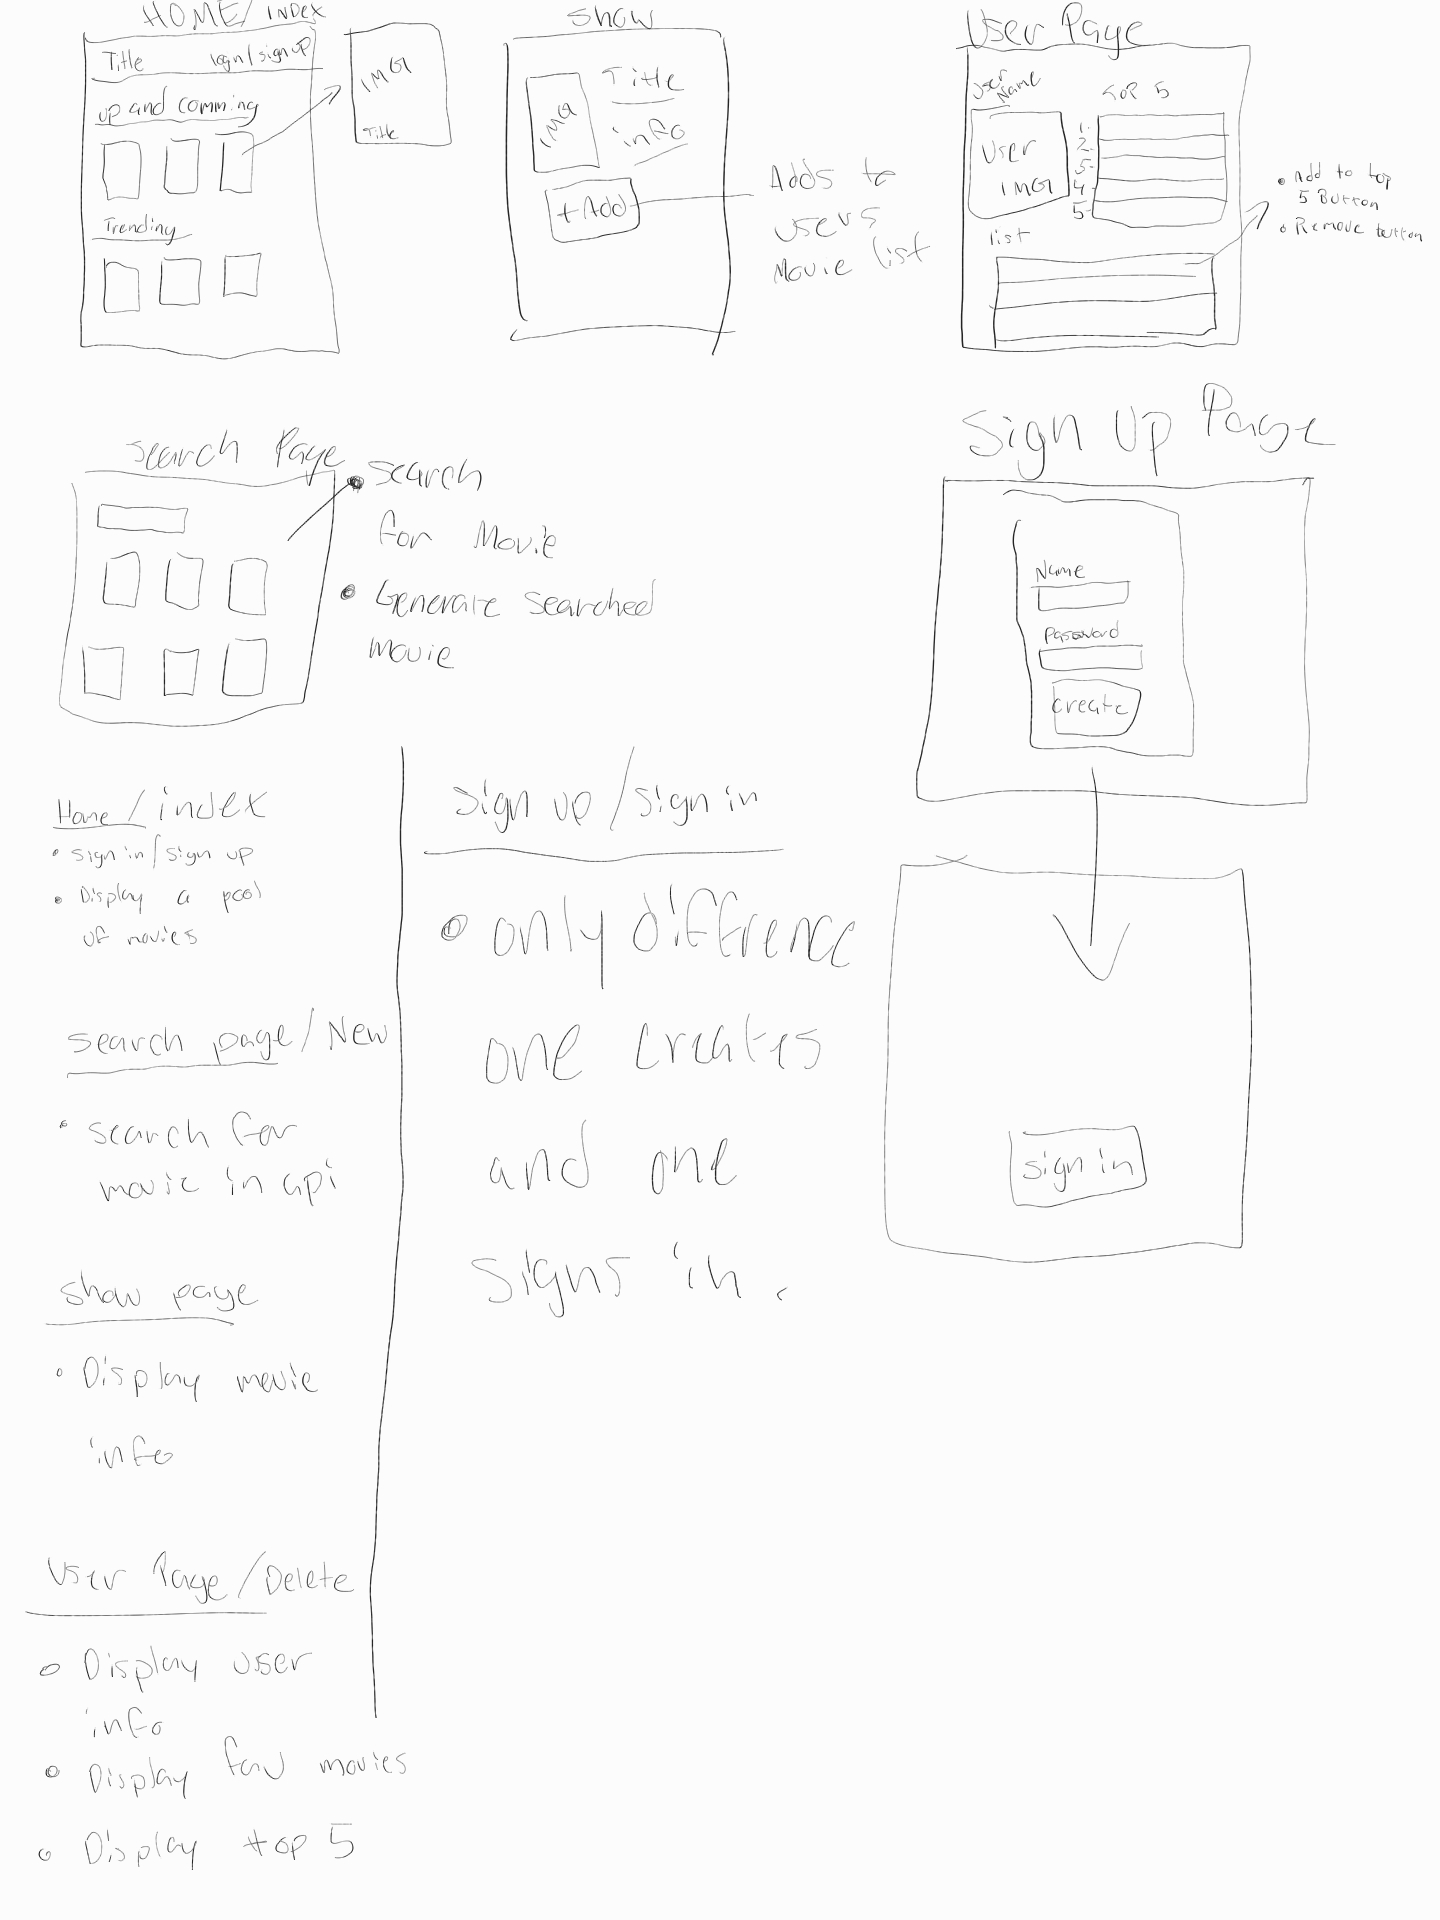 HOME/INDEX
Title login/signup
up and comming
IMG
Title
Trending
Show
IMG
Title
info
+Add
Adds to
users
Movie list
User Page
User
Name
TOP 5
User
IMG
1.
2.
3-
4-
5-
list
• Add to top
5 Button
• Remove button
Search Page
• Search
for Movie
• Generate searched
movie
Sign Up Page
Name
Password
Create
sign in
Home/index
• Sign in/Sign up
• Display a pool
of movies
search page/New
• search for
movie in api
show page
• Display movie
info
User Page/Delete
• Display user
info
• Display fav movies
• Display top 5
Sign up/sign in
• only diffrence
one creates
and one
signs in.